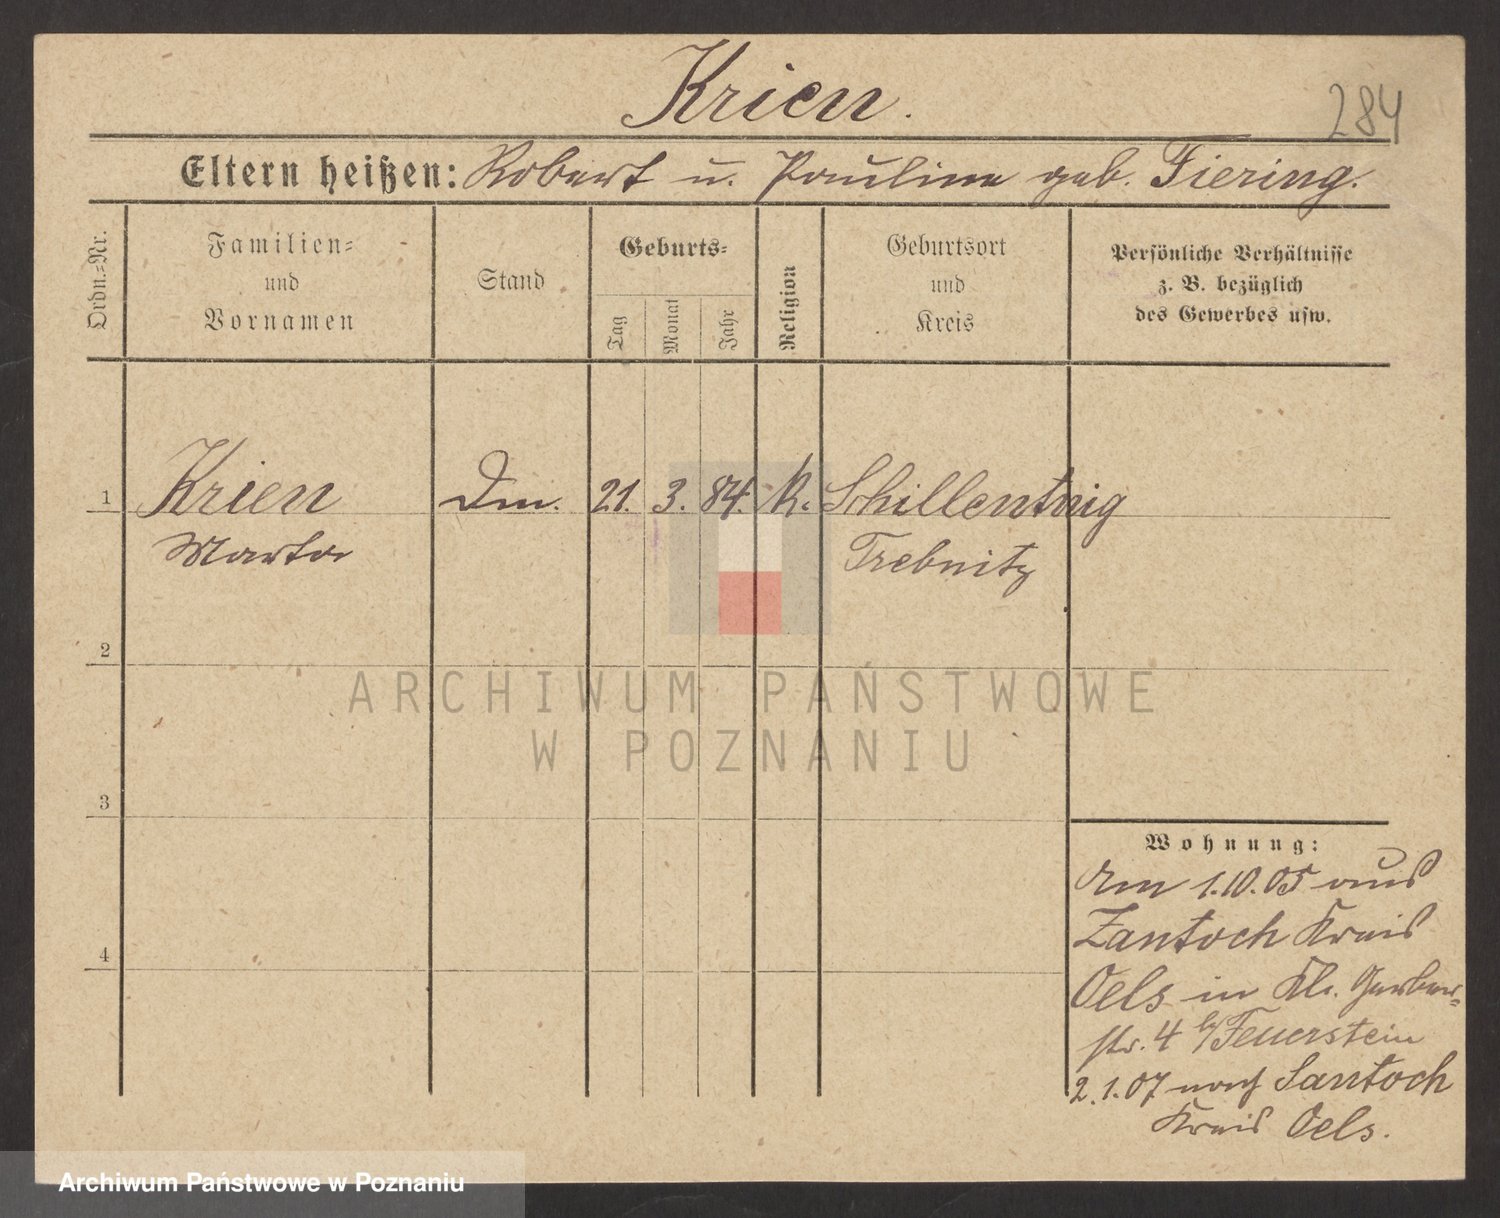 Krien.
284
Eltern heißen: Robert u. Pauline geb. Fiering.
Ordn.=Nr.
Familien=
und
Vornamen
Stand
Geburts=
Tag
Monat
Jahr
Religion
Geburtsort
und
Kreis
Persönliche Verhältnisse
z. B. bezüglich
des Gewerbes usw.
1 Krien Dm. 21. 3. 84. K. Schillentnig
Marta Trebnitz
2
3
4
Wohnung:
Am 1.10.05 aus
Zantoch Kreis
Oels in Kl. Gerber=
str. 4 b/Feuerstein
2.1.07 nach Santoch
Kreis Oels.
ARCHIWUM PAŃSTWOWE
W POZNANIU
Archiwum Państwowe w Poznaniu